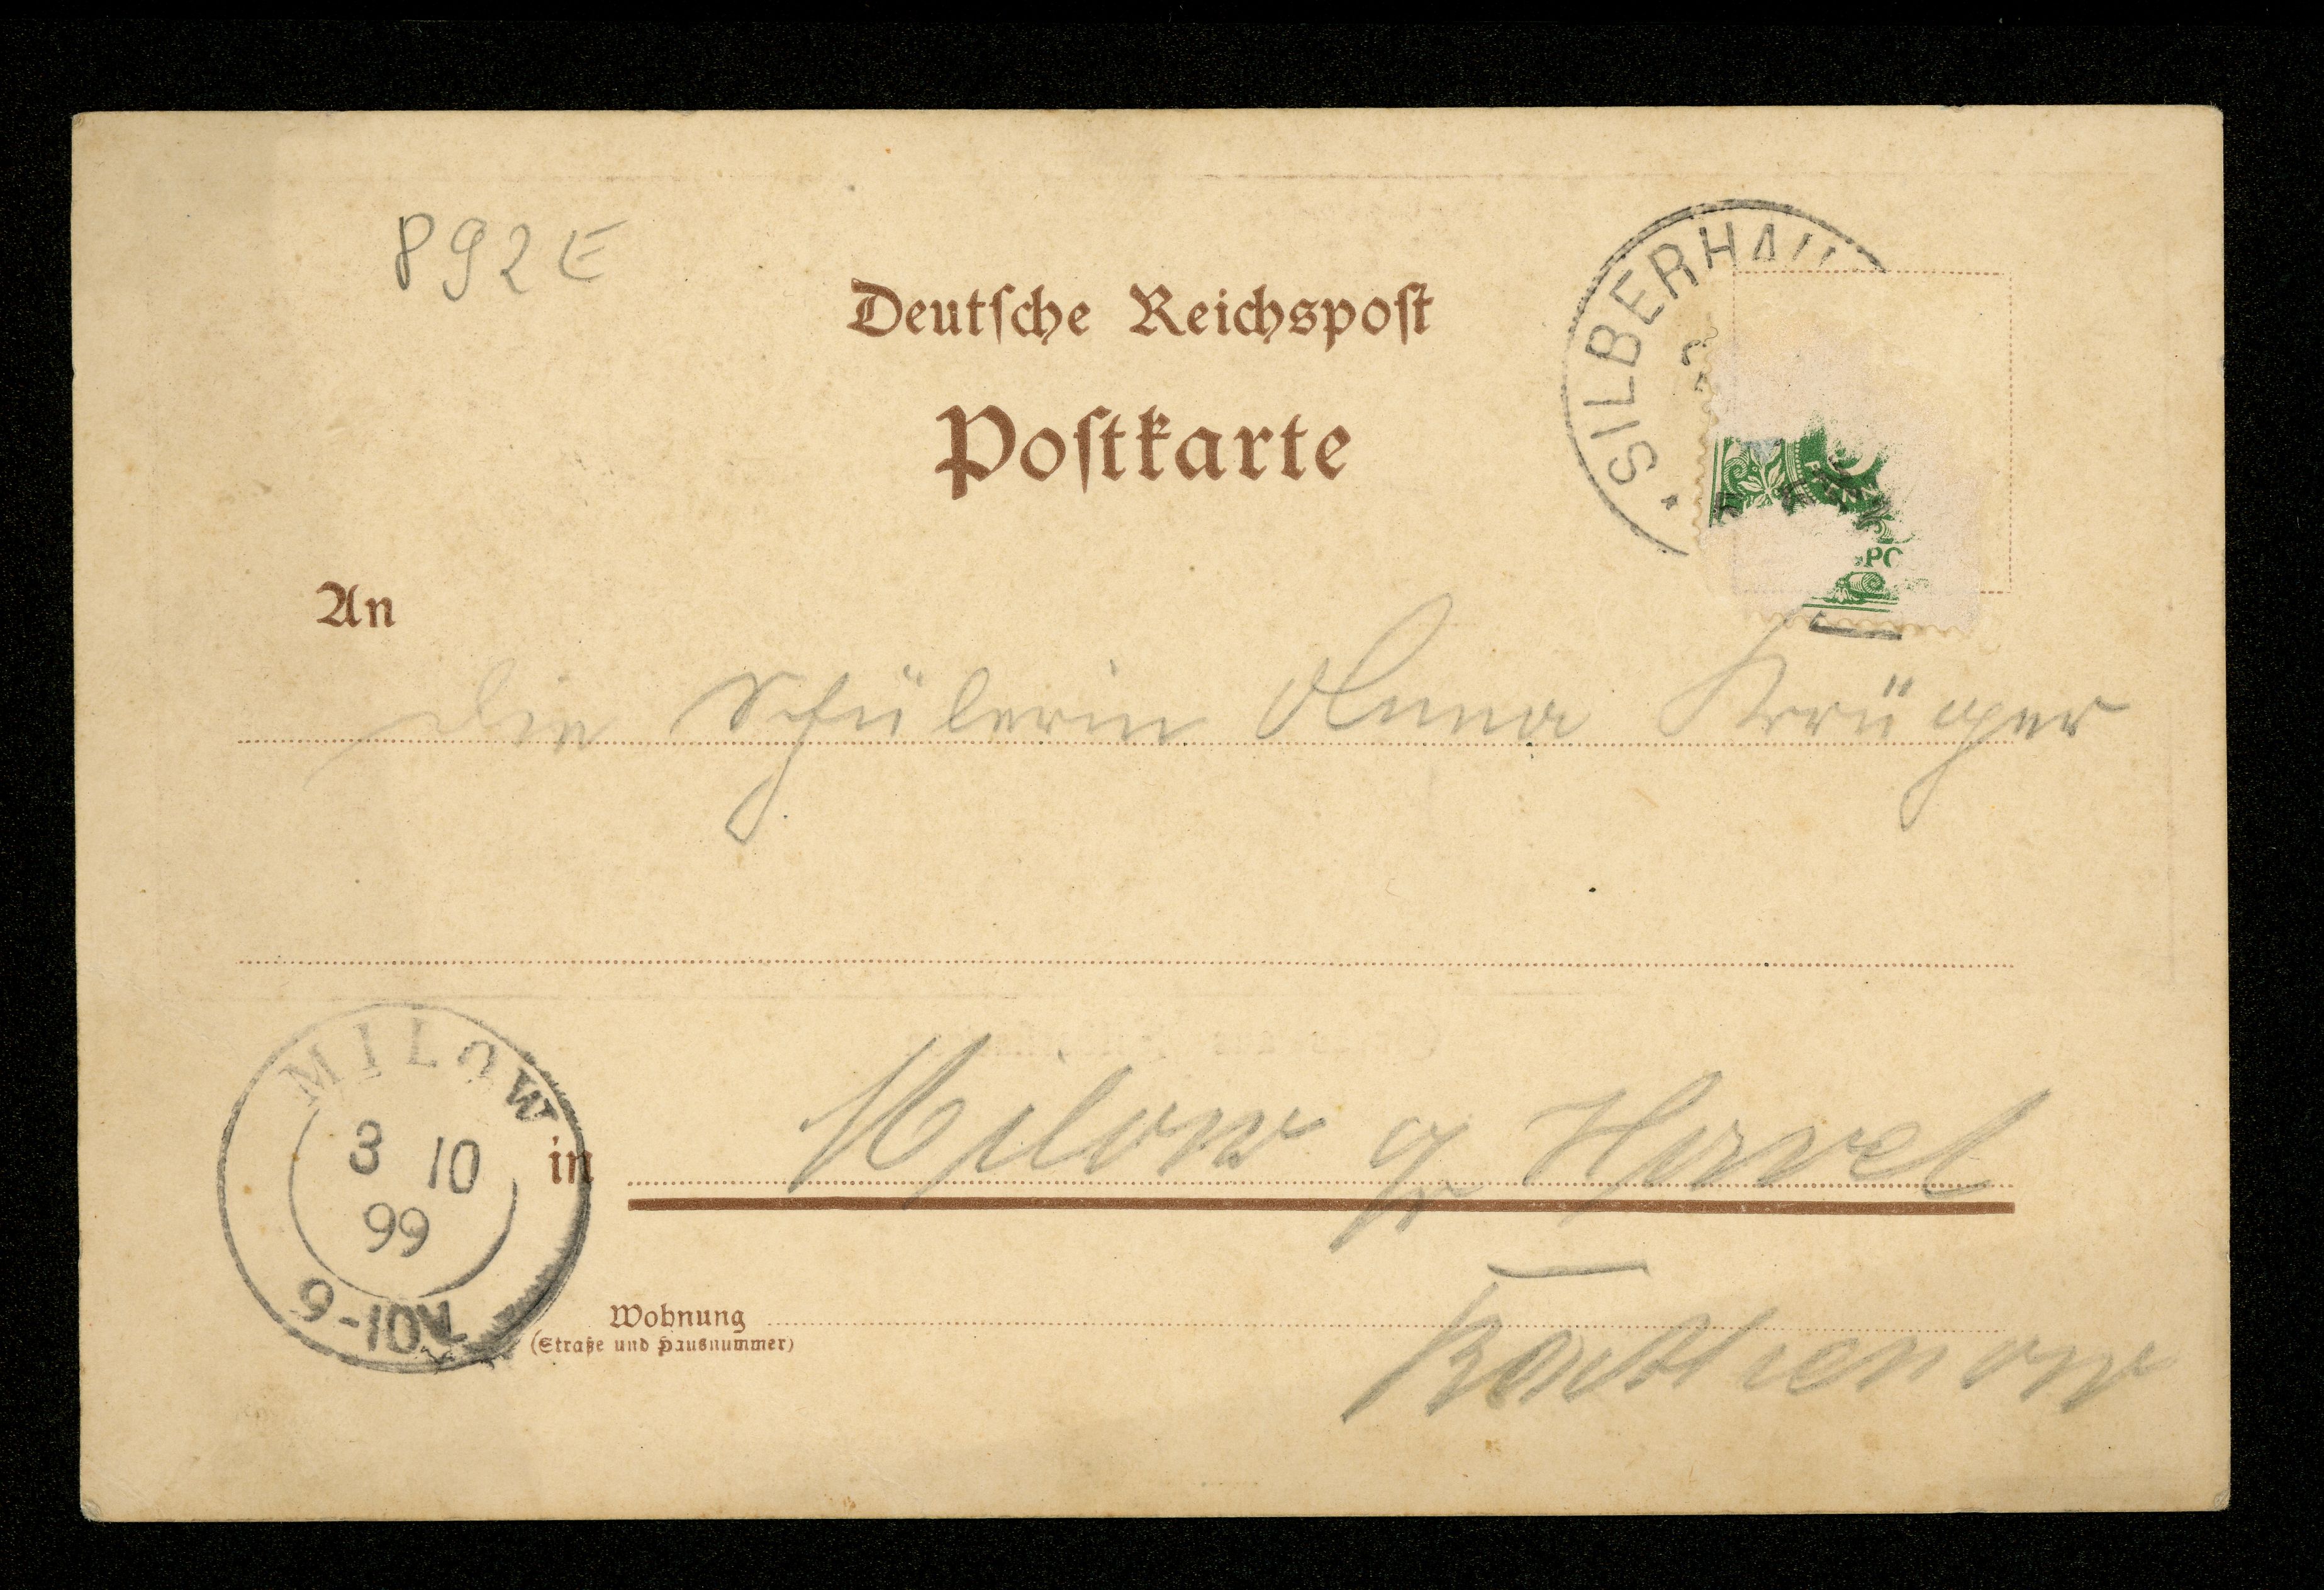 892E
Deutsche Reichspost
Postkarte
SILBERHAU
PO
An
die Schülerin Anna Krüger
MILOW
3 10
99
9-10V
in Milow a Havel
Wohnung
(Straße und Hausnummer)
Rathenow